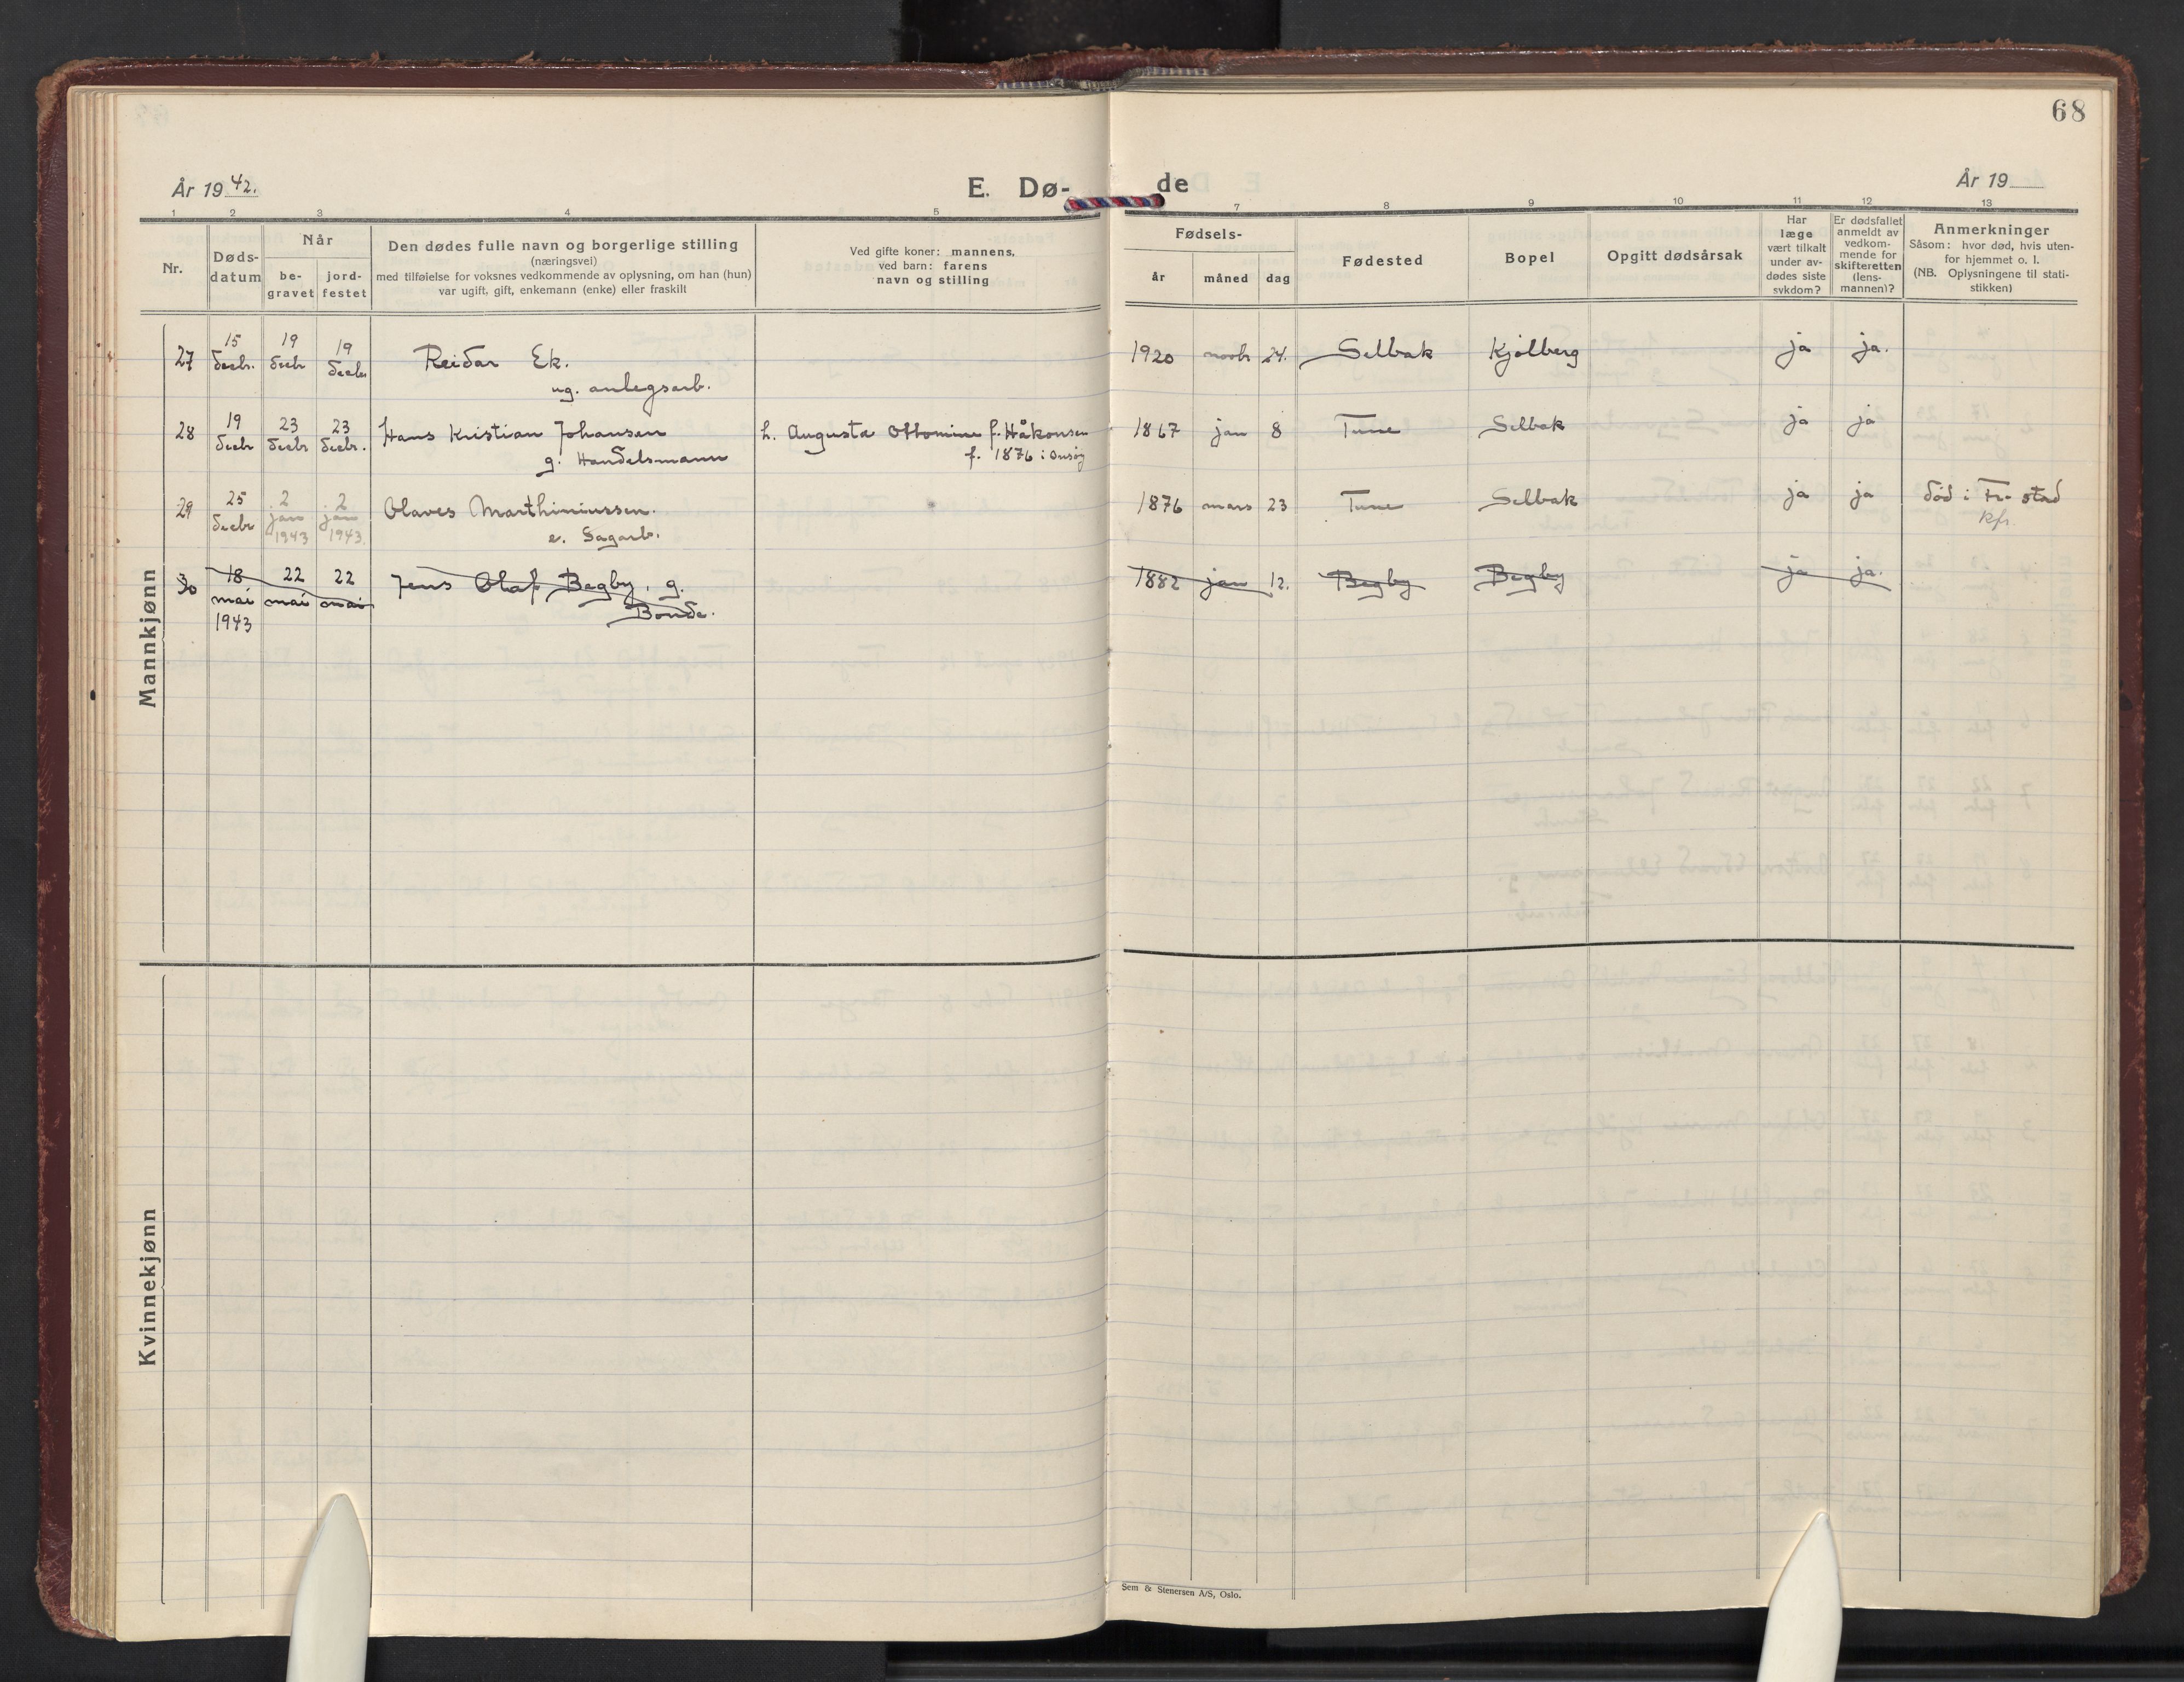 68
År 19 42.
E. Dø-
de
År 19
1 2 3 4 5 7 8 9 10 11 12 13
Nr.
Døds-
datum
Når
be-
gravet
jord-
festet
Den dødes fulle navn og borgerlige stilling
(næringsvei)
med tilføielse for voksnes vedkommende av oplysning, om han (hun)
var ugift, gift, enkemann (enke) eller fraskilt
Ved gifte koner: mannens,
ved barn: farens
navn og stilling
Fødsels-
år
måned
dag
Fødested
Bopel
Opgitt dødsårsak
Har
læge
vært tilkalt
under av-
dødes siste
sykdom?
Er dødsfallet
anmeldt av
vedkom-
mende for
skifteretten
(lens-
mannen)?
Anmerkninger
Såsom: hvor død, hvis uten-
for hjemmet o. l.
(NB. Oplysningene til stati-
stikken)
Mannkjønn
27 15 decbr. 19 decbr 19 decbr Reidar Ek. 1920 novbr 24. Selbak Kjølberg ja ja.
ug. anlegsarb.
28 19 decbr 23 decbr 23 decbr. Hans Kristian Johansen h. Augusta Ottomine f. Håkonsen 1867 jan 8 Tune Selbak ja ja
g. Handelsmann f. 1876 i Onsøy
29 25 decbr 2 jan 1943 2 jan 1943 Olaves Marthiniussen. 1876 mars 23 Tune Selbak ja ja død i Fr-stad
e. Sagarb. kfr.
30 18 mai 1943 22 mai 22 mai Jens Olaf Begby, g. 1882 jan 12. Begby Begby ja ja.
Bonde.
Kvinnekjønn
Sem & Stenersen A/S, Oslo.